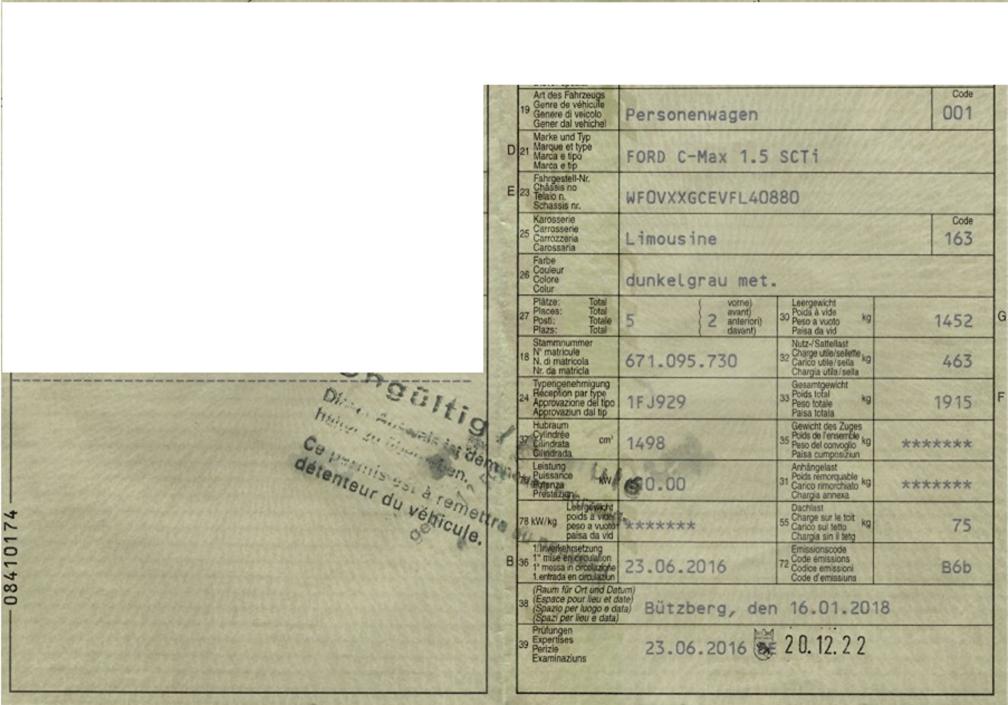 08410174
ungültig / annulé
Ce permis est à remettre au
détenteur du véhicule.
19 Art des Fahrzeugs
Genre de véhicule
Genere di veicolo
Gener dal vehichel
Personenwagen
Code
001
D 21 Marke und Typ
Marque et type
Marca e tipo
Marca e tip
FORD C-Max 1.5 SCTi
E 23 Fahrgestell-Nr.
Châssis no
Telaio n.
Schassis nr.
WF0VXXGCEVFL40880
25 Karosserie
Carrosserie
Carrozzeria
Carossaria
Limousine
Code
163
26 Farbe
Couleur
Colore
Colur
dunkelgrau met.
27 Plätze: Total
Places: Total
Posti: Totale
Plazs: Total
5
( vorne)
( avant)
2 anteriori)
( davant)
30 Leergewicht
Poids à vide
Peso a vuoto
Paisa da vid
kg
1452
G
18 Stammnummer
N° matricule
N. di matricola
Nr. da matricla
671.095.730
32 Nutz-/Sattellast
Charge utile/sellette
Carico utile/sella
Chargia utila/sella
kg
463
24 Typengenehmigung
Réception par type
Approvazione del tipo
Approvaziun dal tip
1FJ929
33 Gesamtgewicht
Poids total
Peso totale
Paisa totala
kg
1915
F
37 Hubraum
Cylindrée
Cilindrata
Cilindrada
cm³
1498
35 Gewicht des Zuges
Poids de l'ensemble
Peso del convoglio
Paisa cumposiziun
kg
*******
Leistung
Puissance
Potenza
Prestaziun
kW
31 Anhängelast
Poids remorquable
Carico rimorchiato
Chargia annexa
kg
*******
78 kW/kg
Leergewicht
poids à vide
peso a vuoto
paisa da vid
*******
55 Dachlast
Charge sur le toit
Carico sul tetto
Chargia sin il tetg
kg
75
B 36 1. Inverkehrsetzung
1re mise en circulation
1a messa in circolazione
1. entrada en circulaziun
23.06.2016
72 Emissionscode
Code émissions
Codice emissioni
Code d'emissiuns
B6b
38 (Raum für Ort und Datum)
(Espace pour lieu et date)
(Spazio per luogo e data)
(Spazi per lieu e data)
Bützberg, den 16.01.2018
39 Prüfungen
Expertises
Perizie
Examinaziuns
23.06.2016 BE 20.12.22